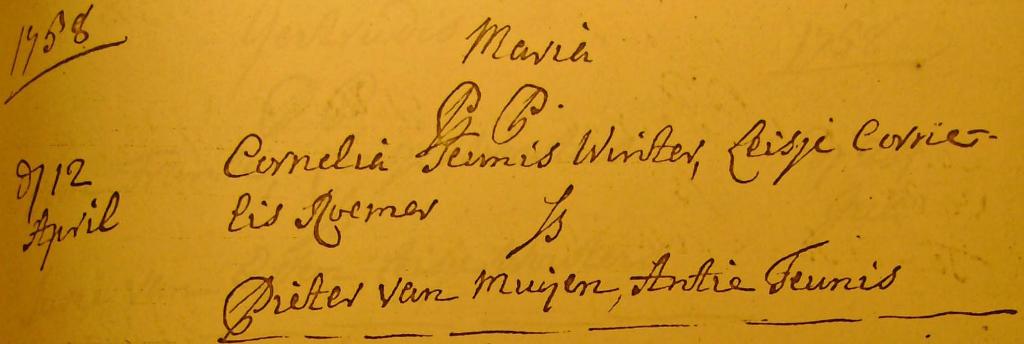 1758
Maria
P P
d 12 April
Cornelia Teunis Winter, Leisje Corne-
lis Roemer
SS
Pieter van Muijen, Antie Teunis